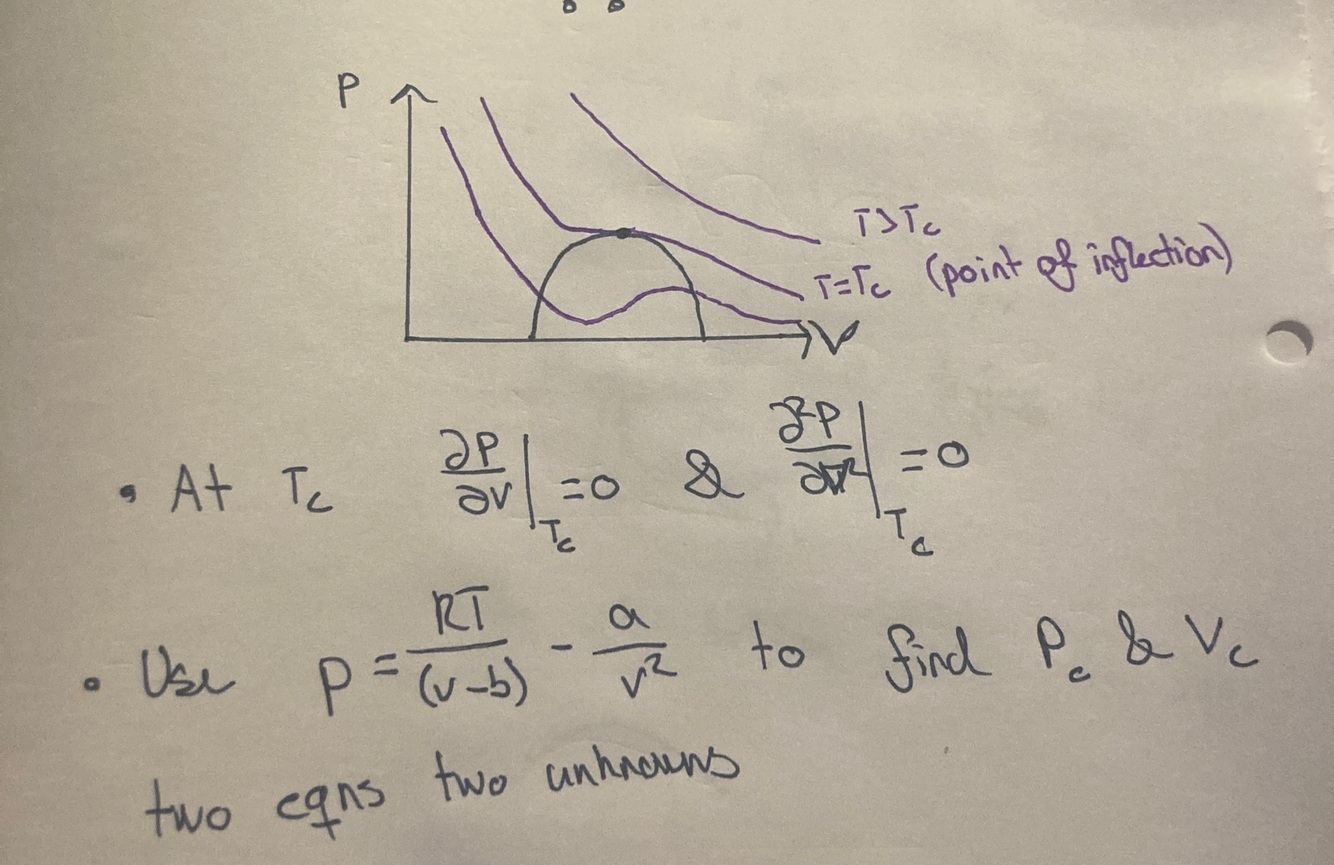 P
T>Tc
T=Tc (point of inflection)
V
• At Tc ∂P/∂V|Tc =0 & ∂²P/∂V²|Tc =0
• Use P = RT/(v-b) - a/v² to find Pc & Vc
two eqns two unknowns